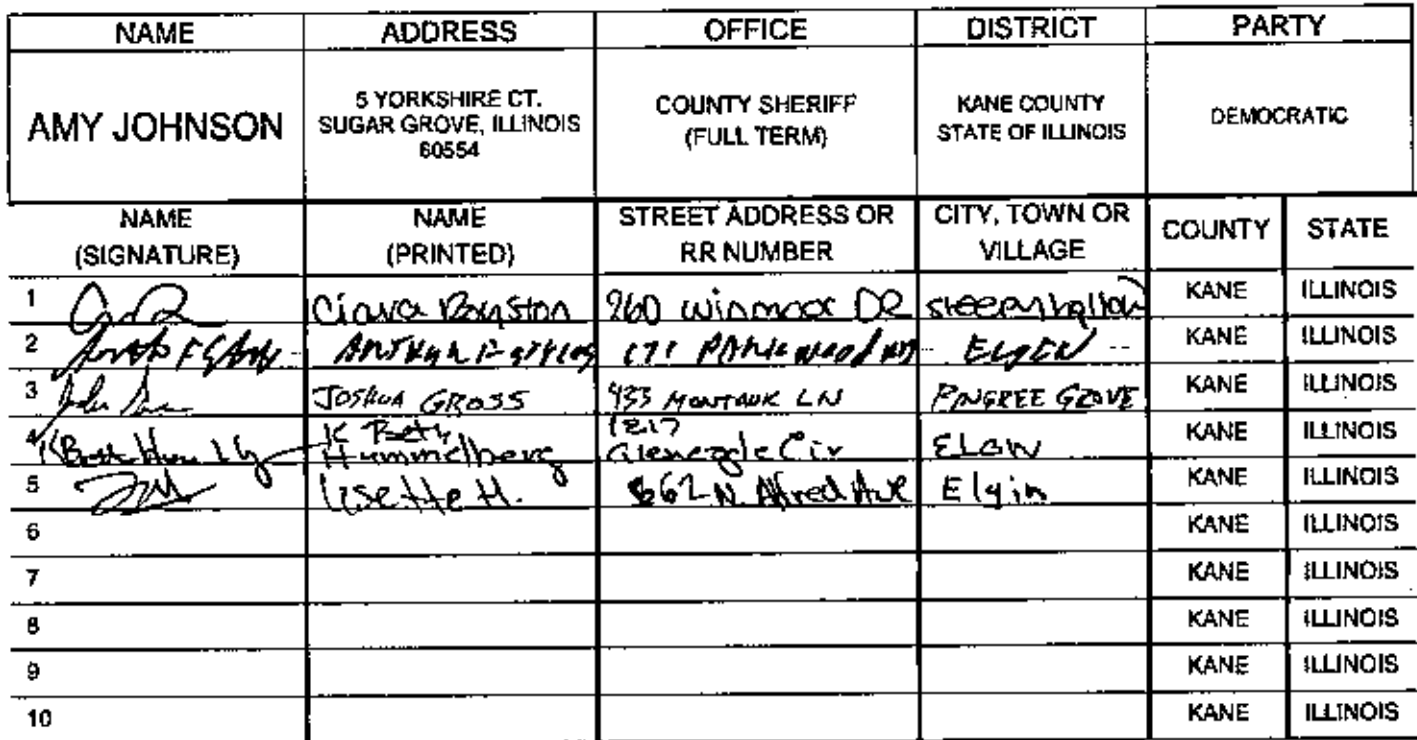 NAME ADDRESS OFFICE DISTRICT PARTY
AMY JOHNSON
5 YORKSHIRE CT.
SUGAR GROVE, ILLINOIS
60554
COUNTY SHERIFF
(FULL TERM)
KANE COUNTY
STATE OF ILLINOIS
DEMOCRATIC
NAME
(SIGNATURE)
NAME
(PRINTED)
STREET ADDRESS OR
RR NUMBER
CITY, TOWN OR
VILLAGE
COUNTY STATE
1 Ciara 960 Winmoor DR Sleepy hollow KANE ILLINOIS
2 ELGIN KANE ILLINOIS
3 JOSHUA GROSS 433 MONTAUK LN PINGREE GROVE KANE ILLINOIS
4 K Beth Hummelberg 1217 Gleneagle Cir ELGIN KANE ILLINOIS
5 Lisette H. 862 N. Alfred Ave Elgin KANE ILLINOIS
6 KANE ILLINOIS
7 KANE ILLINOIS
8 KANE ILLINOIS
9 KANE ILLINOIS
10 KANE ILLINOIS